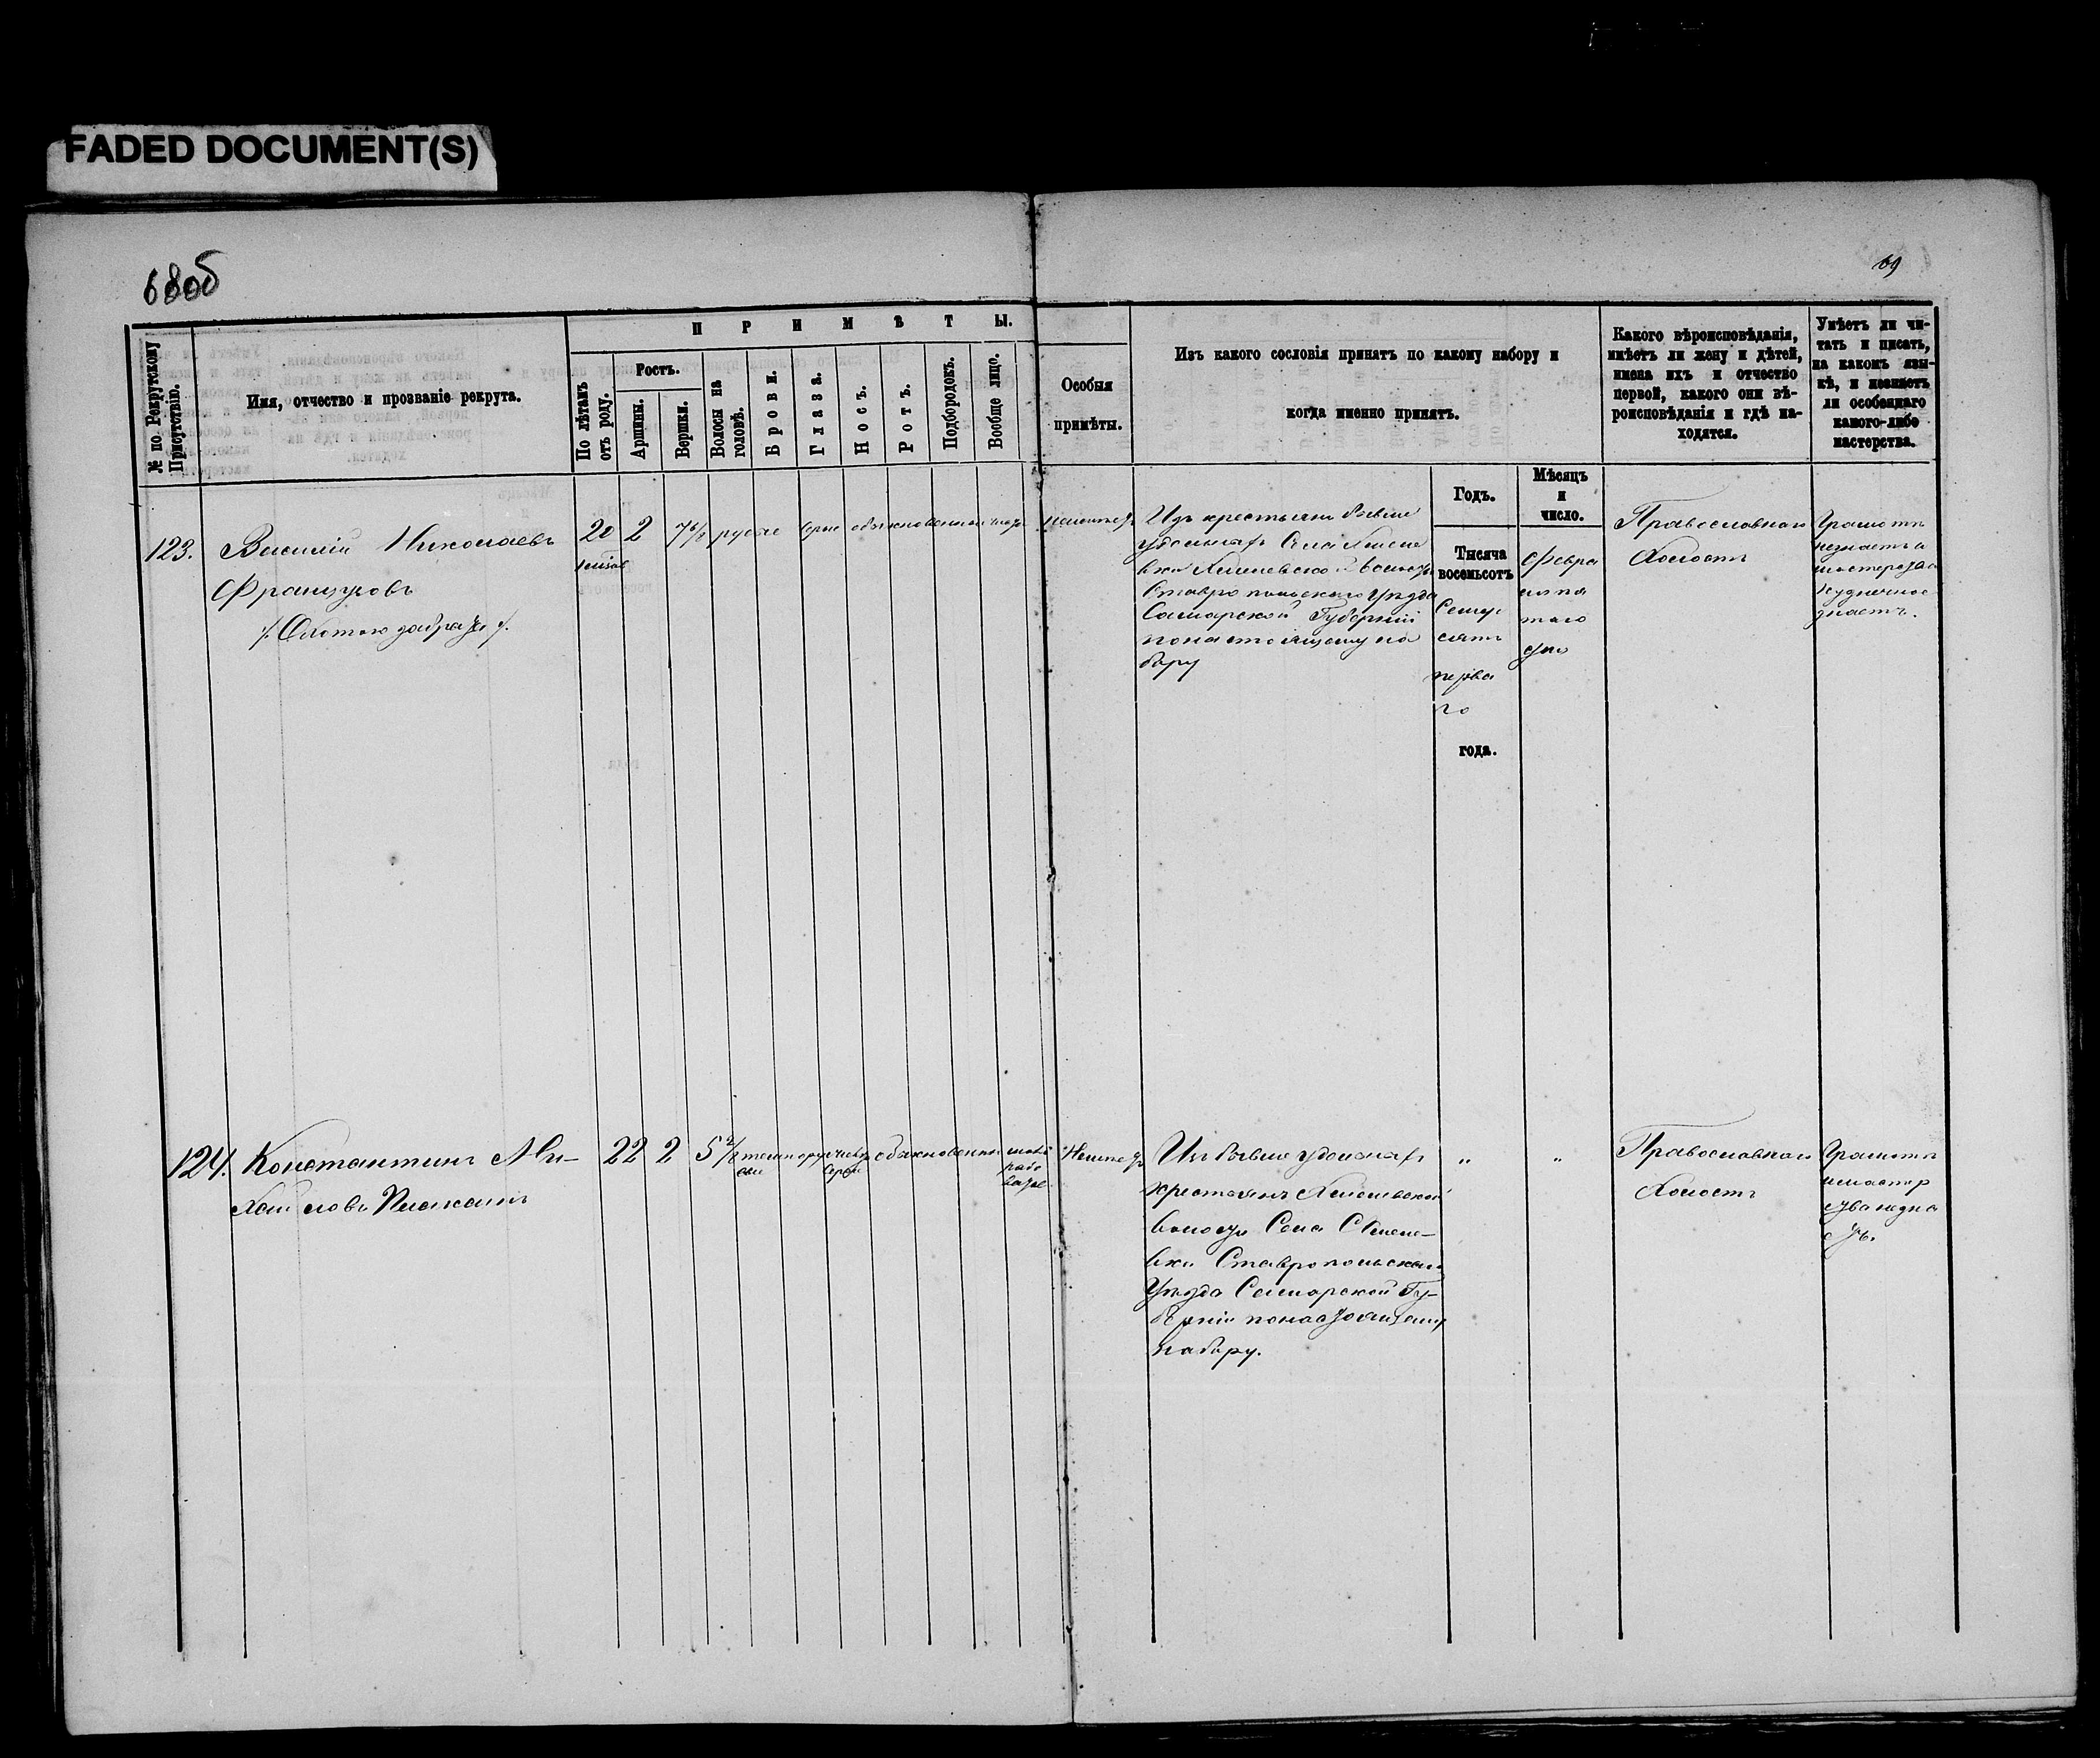 FADED DOCUMENT(S)
68об
69
№ по Рекрутскому
Присутствію.
Имя, отчество и прозваніе рекрута.
ПРИМѢТЫ.
По лѣтамъ
отъ роду.
Ростъ.
Аршины.
Вершки.
Волосы на
головѣ.
Брови.
Глаза.
Носъ.
Ротъ.
Подбородокъ.
Вообще лицо.
Особыя
примѣты.
Изъ какого сословія принятъ по какому набору и
когда именно принятъ.
Какого вѣроисповѣданія,
имѣетъ ли жену и дѣтей,
имена ихъ и отчество
первой, какого они вѣ-
роисповѣданія и гдѣ на-
ходятся.
Умѣетъ ли чи-
тать и писать,
на какомъ язы-
кѣ, и незнаетъ
ли особеннаго
какого-либо
мастерства.
Годъ.
Мѣсяцъ
и
число.
123.
Василій Николаевъ
Французовъ
20
2
7 6/8
русые
серые
обыкновенный
Изъ крестьянъ бывше
удельныхъ Села
волости
Ставропольскаго Уѣзда
Самарской Губерніи
по настоящему на
бору
Тысяча
восемьсотъ
Семьде
сятъ
перва
го
года.
Февра
ля
таго
дня
Православнаго
Холостъ
Грамотѣ
незнаетъ а
мастерова
Кузнечное
знаетъ.
124.
Константинъ Ми-
хайловъ
22
2
5 2/8
темнорус
серые
обыкновенный
Неимеетъ
Изъ бывше удельныхъ
крестьянъ
Волости Села
вки Ставропольскаго
Уѣзда Самарской Гу-
берніи по настоящему
набору.
"
"
Православнаго
Холостъ
Грамотѣ
и мастер
ства незна
етъ.